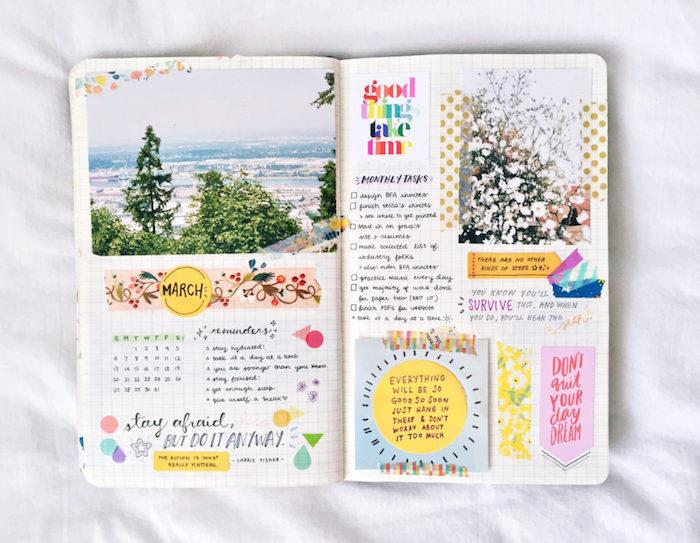 MARCH
S M T W T F S
1 2 3 4 5
6 7 8 9 10 11 12
13 14 15 16 17 18 19
20 21 22 23 24 25 26
27 28 29 30 31
reminders
stay hydrated!
take it a day at a time
you are stronger than you know
stay focused!
get enough sleep
give urself a break
stay afraid,
BUT DO IT ANYWAY.
THE ACTION IS WHAT
REALLY MATTERS.
- CARRIE FISHER -
good
things
take
time
MONTHLY TASKS
design BFA invites
finish tessa's invites
> see where to get printed
start in on grace's
site + resumes
make collected list of
industry folks
> also mdes BFA invites
practice music every day
get majority of work done
for paper two (BRIT LIT)
finish PDFs for website
take it a day at a time
THERE ARE NO OTHER
KINDS OF STEPS.
YOU KNOW YOU'LL
SURVIVE THIS, AND WHEN
YOU DO, YOU'LL HEAR THE
EVERYTHING
WILL BE SO
GOOD SO SOON
JUST HANG IN
THERE & DON'T
WORRY ABOUT
IT TOO MUCH
DON'T
quit
YOUR
day
DREAM